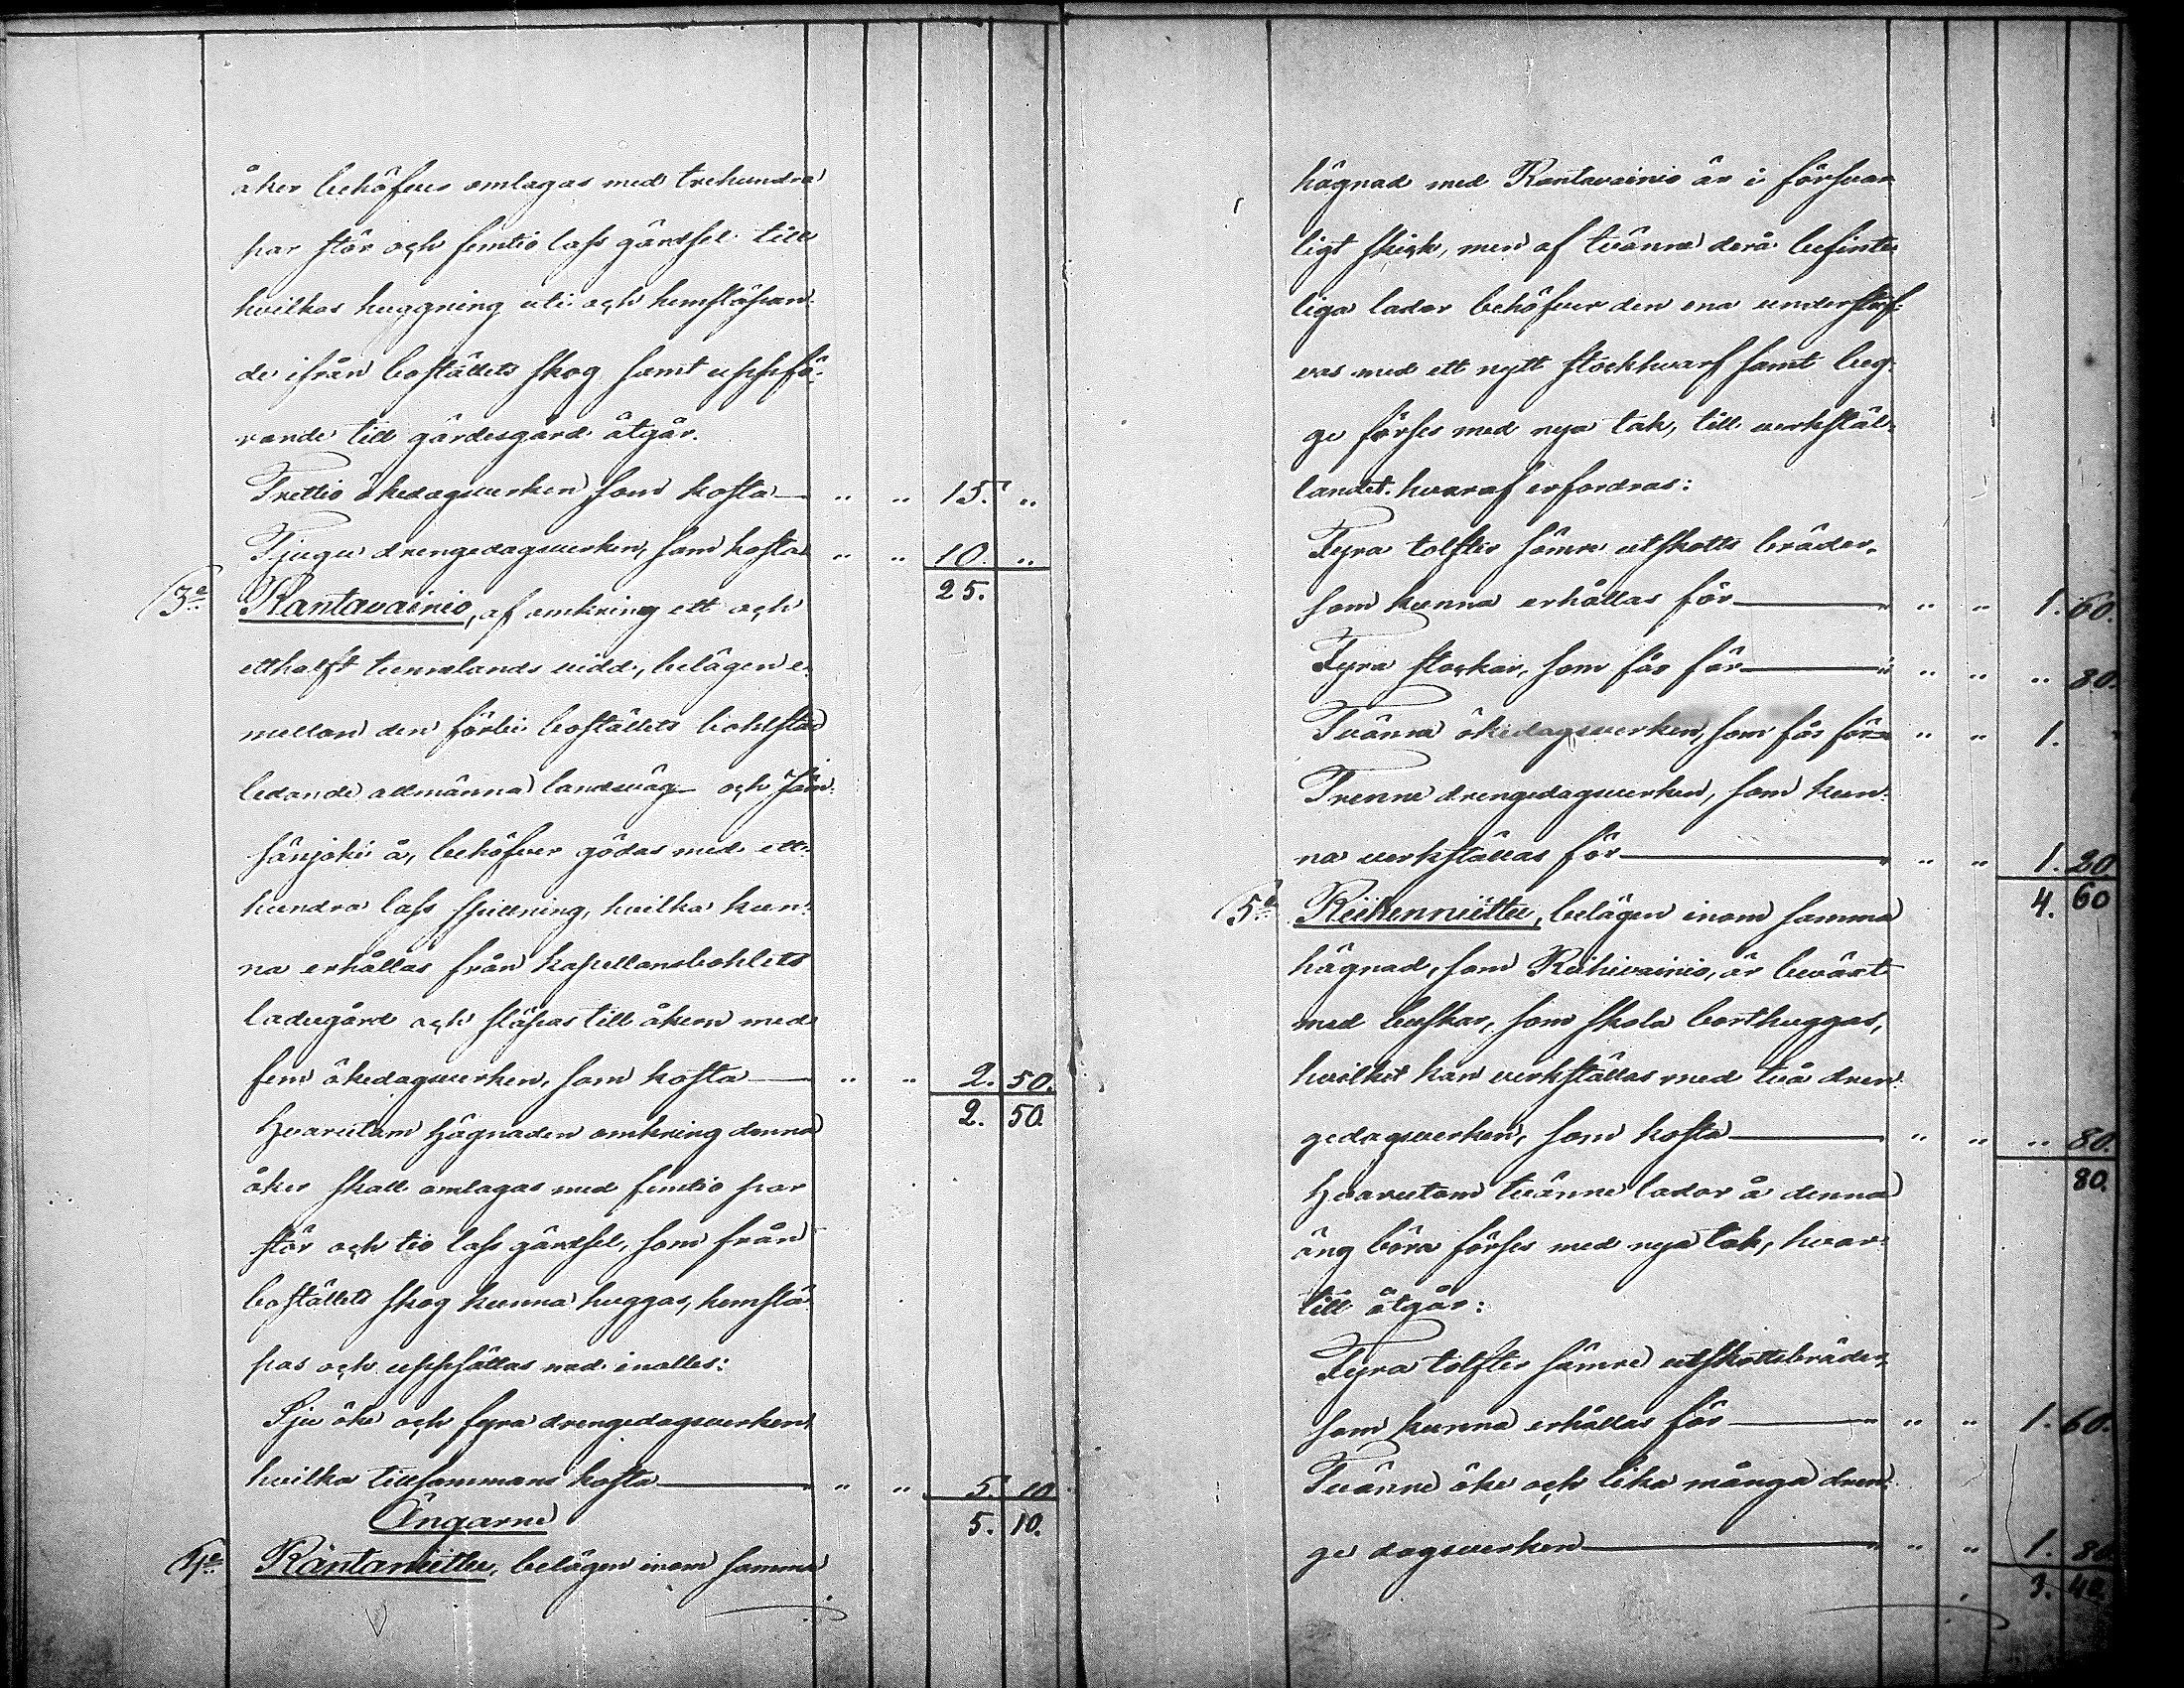 åker behöfver omlagas med trehundra
par stör och femtio lass gärdsel till
hvilkas huggning uti och hemsläpan-
de ifrån boställets skog samt uppfö-
rande till gärdesgård åtgår.
Trettio ökedagsverken som kosta — " " 15. "
Tjugu drengedagsverken, som kosta " " 10. "
25.
3e Rantavainio, af omkring ett och
etthalft tunnelands vidd, belägen e-
mellan den förbi boställets bohlstad
ledande allmänna landsväg och Jän-
sänjoki å, behöfver gödas med ett-
hundra lass spillning, hvilka kun-
na erhållas från kapellansbohlets
ladugård och släpas till åkern med
fem ökedagsverken, som kosta — " " 2. 50.
2. 50.
Hvarutom hägnaden omkring denna
åker skall omlagas med femtio par
stör och tio lass gärdsel, som från
boställets skog kunna huggas, hemslä-
pas och uppsättas med inalles:
Sju öke och fyra drengedagsverken
hvilka tillsammans kosta — " " 5. 10
Ängarne 5. 10.
4e Rantaniittu, belägen inom samma
hägnad med Rantavainio är i försvar
ligt skick, men af tvänne derå befint-
liga lador behöfver den ena understof-
vas med ett nytt stockhvarf samt beg-
ge förses med nya tak, till verkstäl-
landet hvaraf erfordras:
Fyra tolfter sämre utskotts bräder,
som kunna erhållas för — " " 1. 60.
Fyra stockar, som fås för — " " " 80.
Tvänne ökedagsverken, som fås för " " 1. "
Trenne drengedagsverken, som kun-
na verkställas för — " " 1. 20
4. 60
5e Riihenniittu, belägen inom samma
hägnad, som Riihivainio, är beväxt
med buskar, som skola borthuggas,
hvilket kan verkställas med två dren-
gedagsverken, som kosta — " " " 80.
80.
Hvarutom tvänne lador å denna
äng böra förses med nya tak, hvar-
till åtgår:
Fyra tolfter sämre utskottsbräder,
som kunna erhållas för — " " 1. 60.
Tvänne öke och lika många dren-
ge dagsverken — " " 1. 80
3. 40.